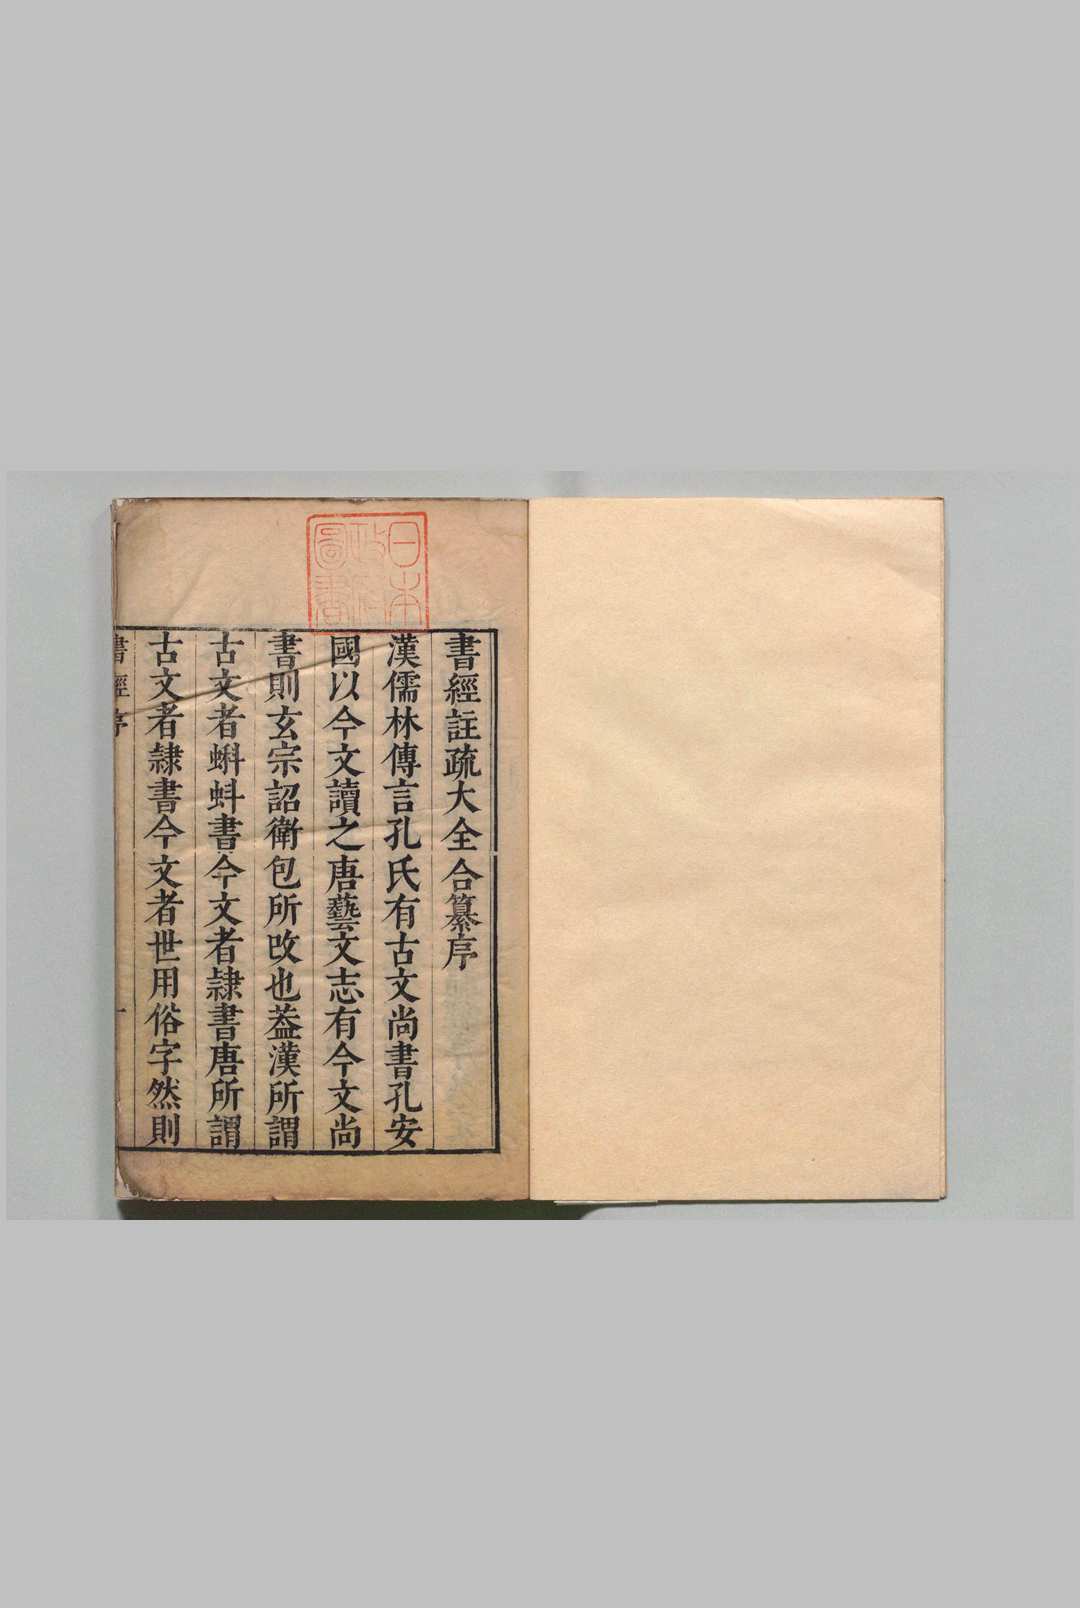 書經註疏大全合纂序
漢儒林傳言孔氏有古文尚書孔安
國以今文讀之唐藝文志有今文尚
書則玄宗詔衛包所改也葢漢所謂
古文者蝌蚪書今文者隷書唐所謂
古文者隷書今文者世用俗字然則
書經序
一
日本
政府
圖書